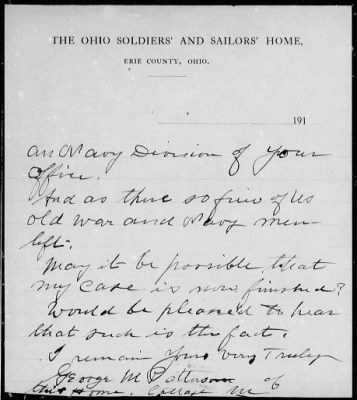 THE OHIO SOLDIERS' AND SAILORS' HOME,
ERIE COUNTY, OHIO.
191
an Navy Division of your
office.
And as there so few of us
old war and Navy men
left.
May it be possible that
my case is now finished?
Would be pleased to hear
that such is the fact.
I remain yours very Truly
George M Patterson of
this Home.